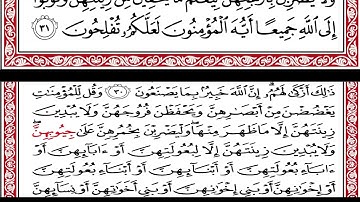 وَلَا يَضْرِبْنَ بِأَرْجُلِهِنَّ لِيُعْلَمَ مَا يُخْفِينَ مِن زِينَتِهِنَّ وَتُوبُوٓا۟
إِلَى ٱللَّهِ جَمِيعًا أَيُّهَ ٱلْمُؤْمِنُونَ لَعَلَّكُمْ تُفْلِحُونَ ٣١
ذَٰلِكَ أَزْكَىٰ لَهُمْ إِنَّ ٱللَّهَ خَبِيرٌۢ بِمَا يَصْنَعُونَ ٣٠ وَقُل لِّلْمُؤْمِنَٰتِ
يَغْضُضْنَ مِنْ أَبْصَٰرِهِنَّ وَيَحْفَظْنَ فُرُوجَهُنَّ وَلَا يُبْدِينَ
زِينَتَهُنَّ إِلَّا مَا ظَهَرَ مِنْهَا وَلْيَضْرِبْنَ بِخُمُرِهِنَّ عَلَىٰ جُيُوبِهِنَّ
وَلَا يُبْدِينَ زِينَتَهُنَّ إِلَّا لِبُعُولَتِهِنَّ أَوْ ءَابَآئِهِنَّ أَوْ
ءَابَآءِ بُعُولَتِهِنَّ أَوْ أَبْنَآئِهِنَّ أَوْ أَبْنَآءِ بُعُولَتِهِنَّ أَوْ
إِخْوَٰنِهِنَّ أَوْ بَنِىٓ إِخْوَٰنِهِنَّ أَوْ بَنِىٓ أَخَوَٰتِهِنَّ أَوْ نِسَآئِهِنَّ